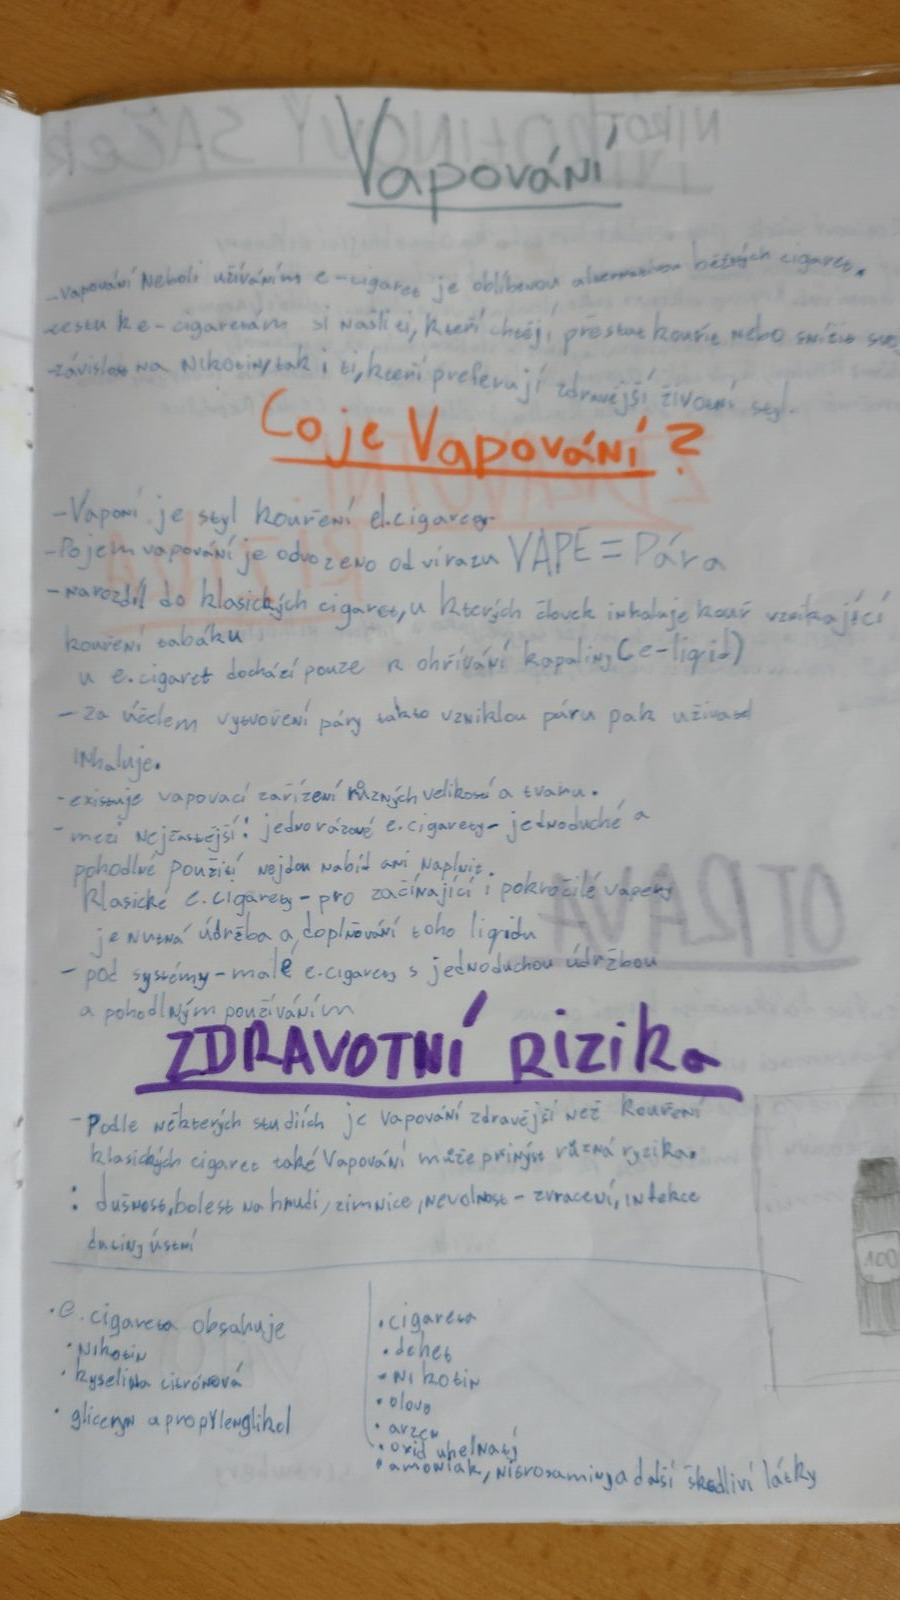 Vapování
-vapování neboli užíváním e-cigaret je oblíbenou alternativou běžných cigaret.
cestu k e-cigaretám si našli ti, kteří chtějí přestat kouřit nebo snížit
-závislost na nikotinu, tak i ti, kteří preferují zdravější životní styl.
Co je Vapování?
-Vaponí je styl kouření e.cigaret
-Pojem vapování je odvozeno od virazu VAPE = Pára
-narozdíl do klasických cigaret, u kterých človek inhaluje kouř vznikající
kouření tabáku
u e.cigaret dochází pouze k ohřívání kapaliny (e-liqid)
-za účelem vytvoření páry takto vzniklou páru pak uživatel
inhaluje.
-existuje vapovací zařízení různých velikostí a tvaru.
-mezi nejčastější: jednorázové e.cigarety- jednoduché a
pohodlné použití nejdou nabíd ani naplnit.
klasické e.cigarety-pro začínající i pokročilé vapery
je nutná údržba a doplňování toho liqidu
- pod systémy-malé e.cigarety s jednoduchou údržbou
a pohodlným používáním
ZDRAVOTNÍ rizika
-Podle některých studiích je vapování zdravější než kouření
klasických cigaret také Vapování může přinýst různá ryzika.
: dušnost, bolest na hrudi, zimnice, nevolnost - zvracení, infekce
dutiny ústní
•e.cigareta obsahuje
•nikotin
•kyselina citrónová
•gliceryn a propylenglikol
•cigareta
•dehet
•nikotin
•olovo
•arzen
•oxid uhelnatý
•amoniak, nitrosaminy a další škodliví látky
100